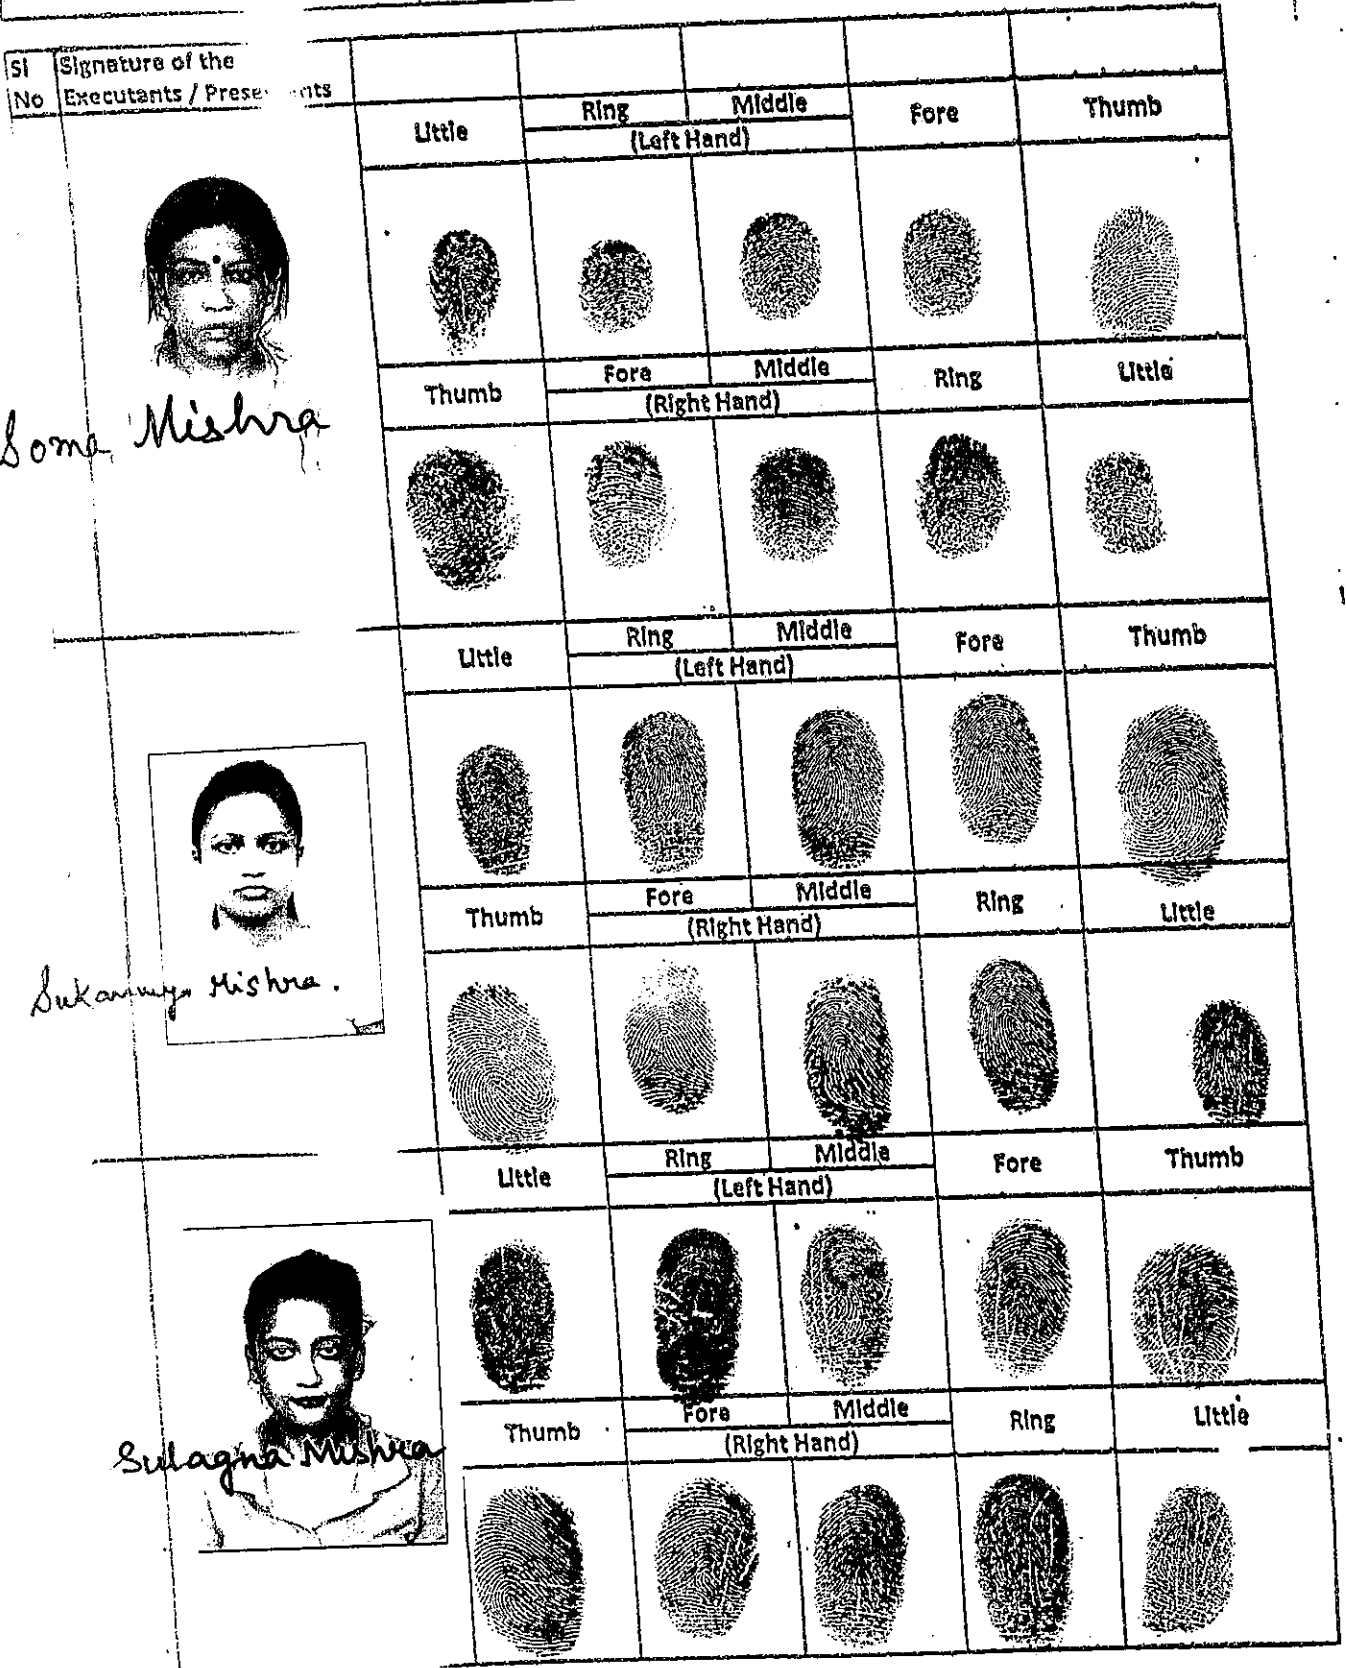 Sl No
Signature of the Executants / Presentants
Little Ring Middle Fore Thumb
(Left Hand)
Thumb Fore Middle Ring Little
(Right Hand)
Soma Mishra
Little Ring Middle Fore Thumb
(Left Hand)
Thumb Fore Middle Ring Little
(Right Hand)
Sukannya Mishra.
Little Ring Middle Fore Thumb
(Left Hand)
Thumb Fore Middle Ring Little
(Right Hand)
Sulagna Mishra